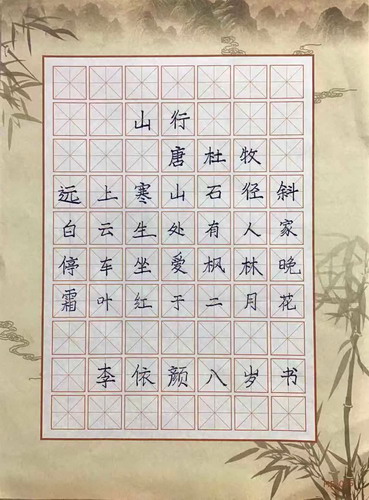 山行
唐杜牧
远上寒山石径斜
白云生处有人家
停车坐爱枫林晚
霜叶红于二月花
李依颜八岁书